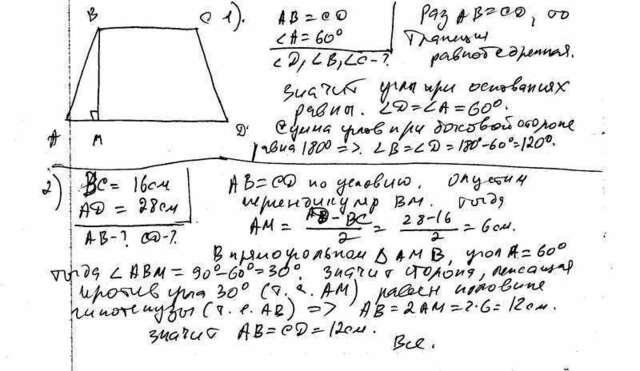 B C 1). AB = CD Раз AB = CD, то
∠A = 60° трапеция
∠D, ∠B, ∠C - ? равнобедренная.
Значит углы при основаниях
равны. ∠D = ∠A = 60°.
A M D Сумма углов при боковой стороне
равна 180° => ∠B = ∠D = 180° - 60° = 120°.
2) BC = 16 см AB = CD по условию. Опустим
AD = 28 см перпендикуляр BM. Тогда
AB - ? CD - ? AM = (AD - BC)/2 = (28 - 16)/2 = 6 см.
В прямоугольном Δ AMB, угол A = 60°
тогда ∠ABM = 90° - 60° = 30°. Значит сторона, лежащая
против угла 30° (т. е. AM) равен половине
гипотенузы (т. е. AB) => AB = 2AM = 2·6 = 12 см.
Значит AB = CD = 12 см.
Все.